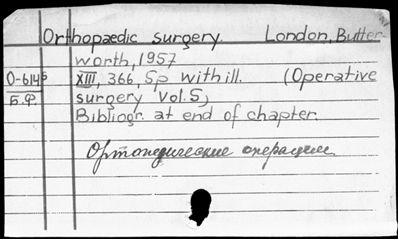 Orthopaedic surgery. London, Butter-
worth, 1957
O-6145 XIII, 366, 5p with ill. (Operative
Б.Ф surgery Vol. 5)
Bibliogr. at end of chapter.
Ортопедические операции.